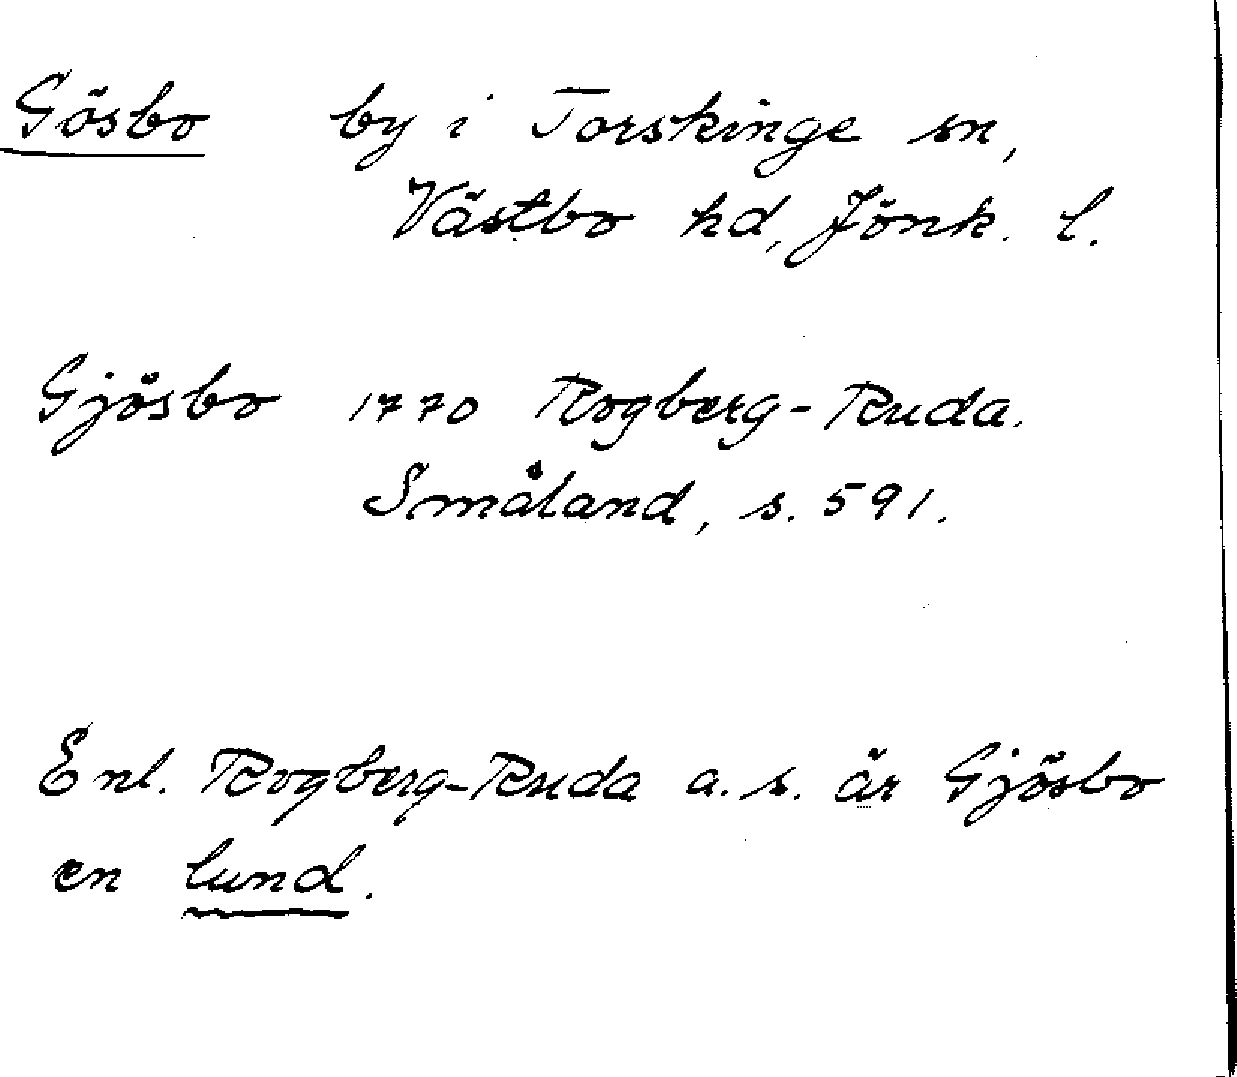 Gösbo by i Torskinge sn,
Västbo hd, Jönk. l.
Gjösbo 1770 Rogberg-Ruda.
Småland, s. 591.
Enl. Rogberg-Ruda a. s. är Gjösbo
en lund.